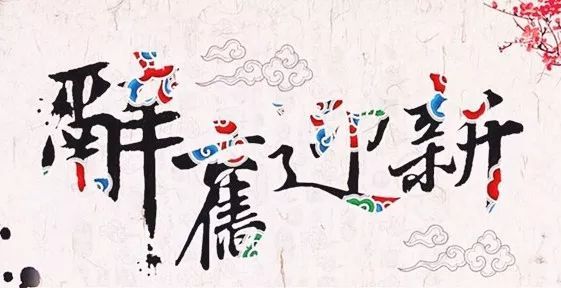 辭舊迎新